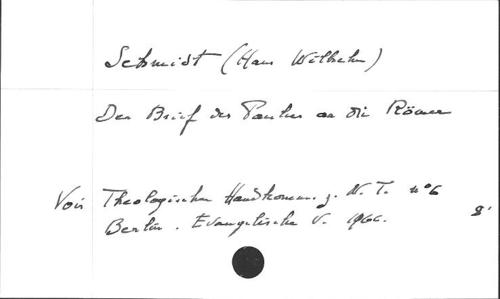 Schmidt (Hans Wilhelm)
Der Brief des Paulus an die Römer
Voir Theologischer Handkomm. z. N. T. n° 6
Berlin. Evangelische V. 1966.
8°